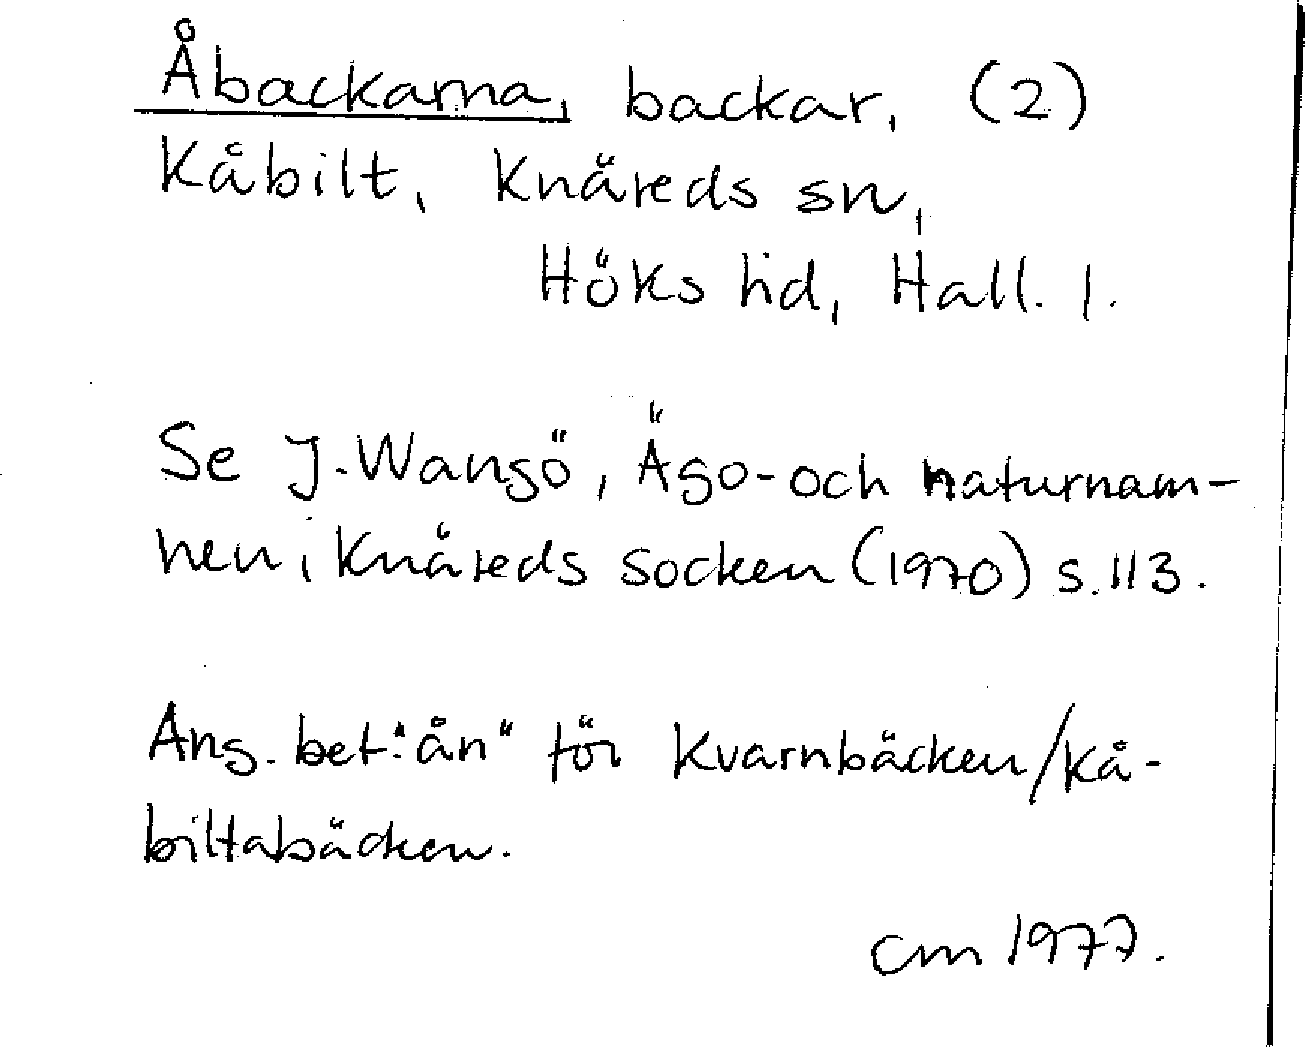 Åbackarna, backar, (2)
Kåbilt, Knäreds sn,
Höks hd, Hall. l.
Se J. Wangö, Ägo- och naturnam-
nen i Knäreds socken (1970) s. 113.
Ang. bet. "ån" för Kvarnbäcken/Kå-
biltabäcken.
CM 1977.